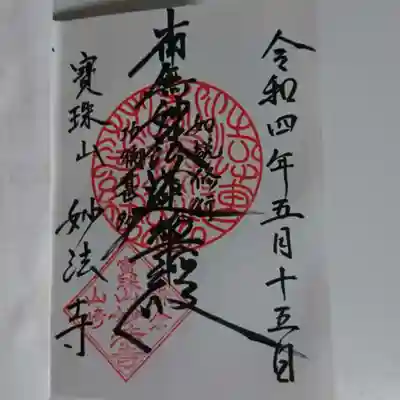 令和四年五月十五日
如説修行
南無妙法蓮華経
寶珠山 妙法寺